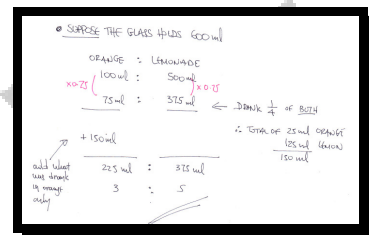 • SUPPOSE THE GLASS HOLDS 600ml
ORANGE : LEMONADE
100ml : 500ml
x0.75 x0.75
75ml : 375ml ← DRANK 1/4 of BOTH
∴ TOTAL OF 25ml ORANGE
125ml LEMON
150ml
+150ml
add what
was drank
in orange
only
225ml : 375ml
3 : 5